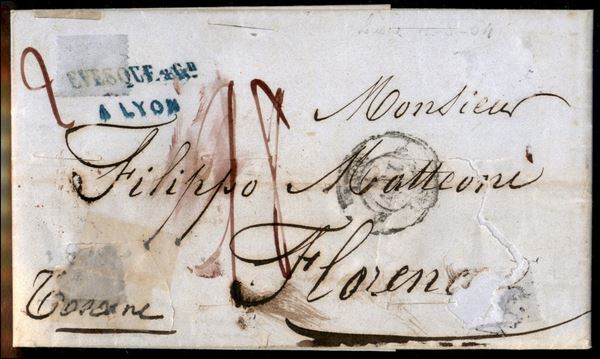 2
EVESQUE & Cie
A LYON
Monsieur
Filippo Matteoni
Florenc
Toscane